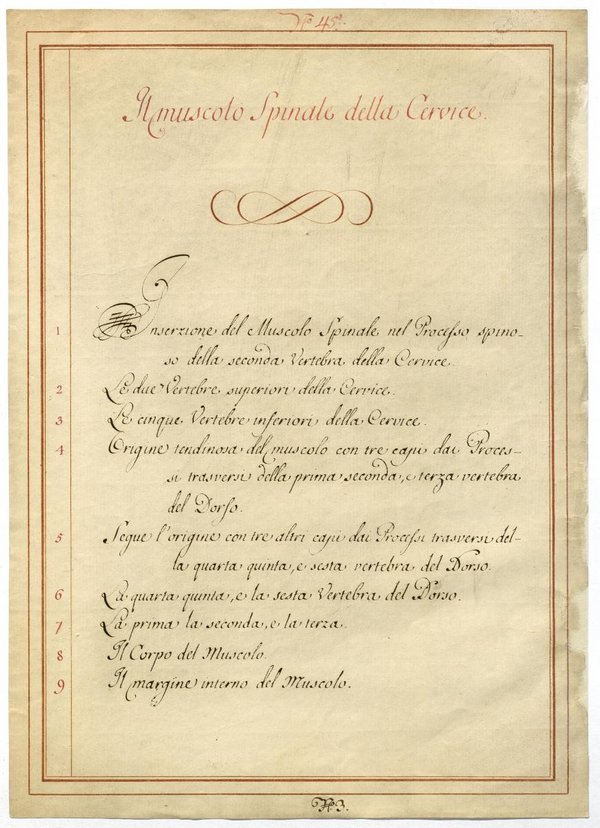 Nº 45º.
Il muscolo Spinale della Cervice.
1 Inserzione del Muscolo Spinale nel Processo spino-
so della seconda Vertebra della Cervice.
2 Le due Vertebre superiori della Cervice.
3 Le cinque Vertebre inferiori della Cervice.
4 Origine tendinosa del muscolo con tre capi dai Proces-
si trasversi della prima seconda, e terza vertebra
del Dorso.
5 Segue l'origine con tre altri capi dai Processi trasversi del-
la quarta quinta, e sesta vertebra del Dorso.
6 La quarta quinta, e la sesta Vertebra del Dorso.
7 La prima la seconda, e la terza.
8 Il Corpo del Muscolo.
9 Il margine interno del Muscolo.
Nº 3.